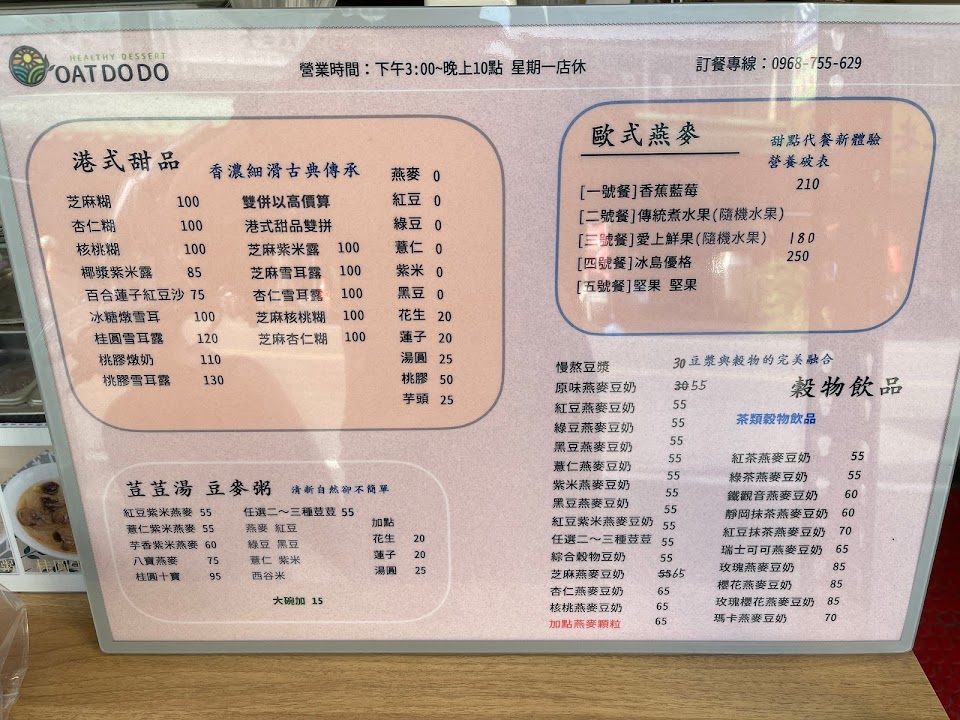 HEALTHY DESSERT
OAT DO DO
營業時間：下午3:00~晚上10點 星期一店休
訂餐專線：0968-755-629
港式甜品 香濃細滑古典傳承
芝麻糊 100
杏仁糊 100
核桃糊 100
椰漿紫米露 85
百合蓮子紅豆沙 75
冰糖燉雪耳 100
桂圓雪耳露 120
桃膠燉奶 110
桃膠雪耳露 130
雙併以高價算
港式甜品雙拼
芝麻紫米露 100
芝麻雪耳露 100
杏仁雪耳露 100
芝麻核桃糊 100
芝麻杏仁糊 100
燕麥 0
紅豆 0
綠豆 0
薏仁 0
紫米 0
黑豆 0
花生 20
蓮子 20
湯圓 25
桃膠 50
芋頭 25
歐式燕麥 甜點代餐新體驗
營養破表
[一號餐]香蕉藍莓 210
[二號餐]傳統煮水果(隨機水果)
[三號餐]愛上鮮果(隨機水果) 180
[四號餐]冰島優格 250
[五號餐]堅果 堅果
荳荳湯 豆麥粥 清新自然卻不簡單
紅豆紫米燕麥 55
薏仁紫米燕麥 55
芋香紫米燕麥 60
八寶燕麥 75
桂圓十寶 95
任選二～三種荳荳 55
燕麥 紅豆
綠豆 黑豆
薏仁 紫米
西谷米
加點
花生 20
蓮子 20
湯圓 25
大碗加 15
豆漿與穀物的完美融合
穀物飲品
慢熬豆漿 30
原味燕麥豆奶 30 55
紅豆燕麥豆奶 55
綠豆燕麥豆奶 55
黑豆燕麥豆奶 55
薏仁燕麥豆奶 55
紫米燕麥豆奶 55
黑豆燕麥豆奶 55
紅豆紫米燕麥豆奶 55
任選二～三種荳荳 55
綜合穀物豆奶 55
芝麻燕麥豆奶 55 65
杏仁燕麥豆奶 65
核桃燕麥豆奶 65
加點燕麥顆粒 65
茶類穀物飲品
紅茶燕麥豆奶 55
綠茶燕麥豆奶 55
鐵觀音燕麥豆奶 60
靜岡抹茶燕麥豆奶 60
紅豆抹茶燕麥豆奶 70
瑞士可可燕麥豆奶 65
玫瑰燕麥豆奶 85
櫻花燕麥豆奶 85
玫瑰櫻花燕麥豆奶 85
瑪卡燕麥豆奶 70